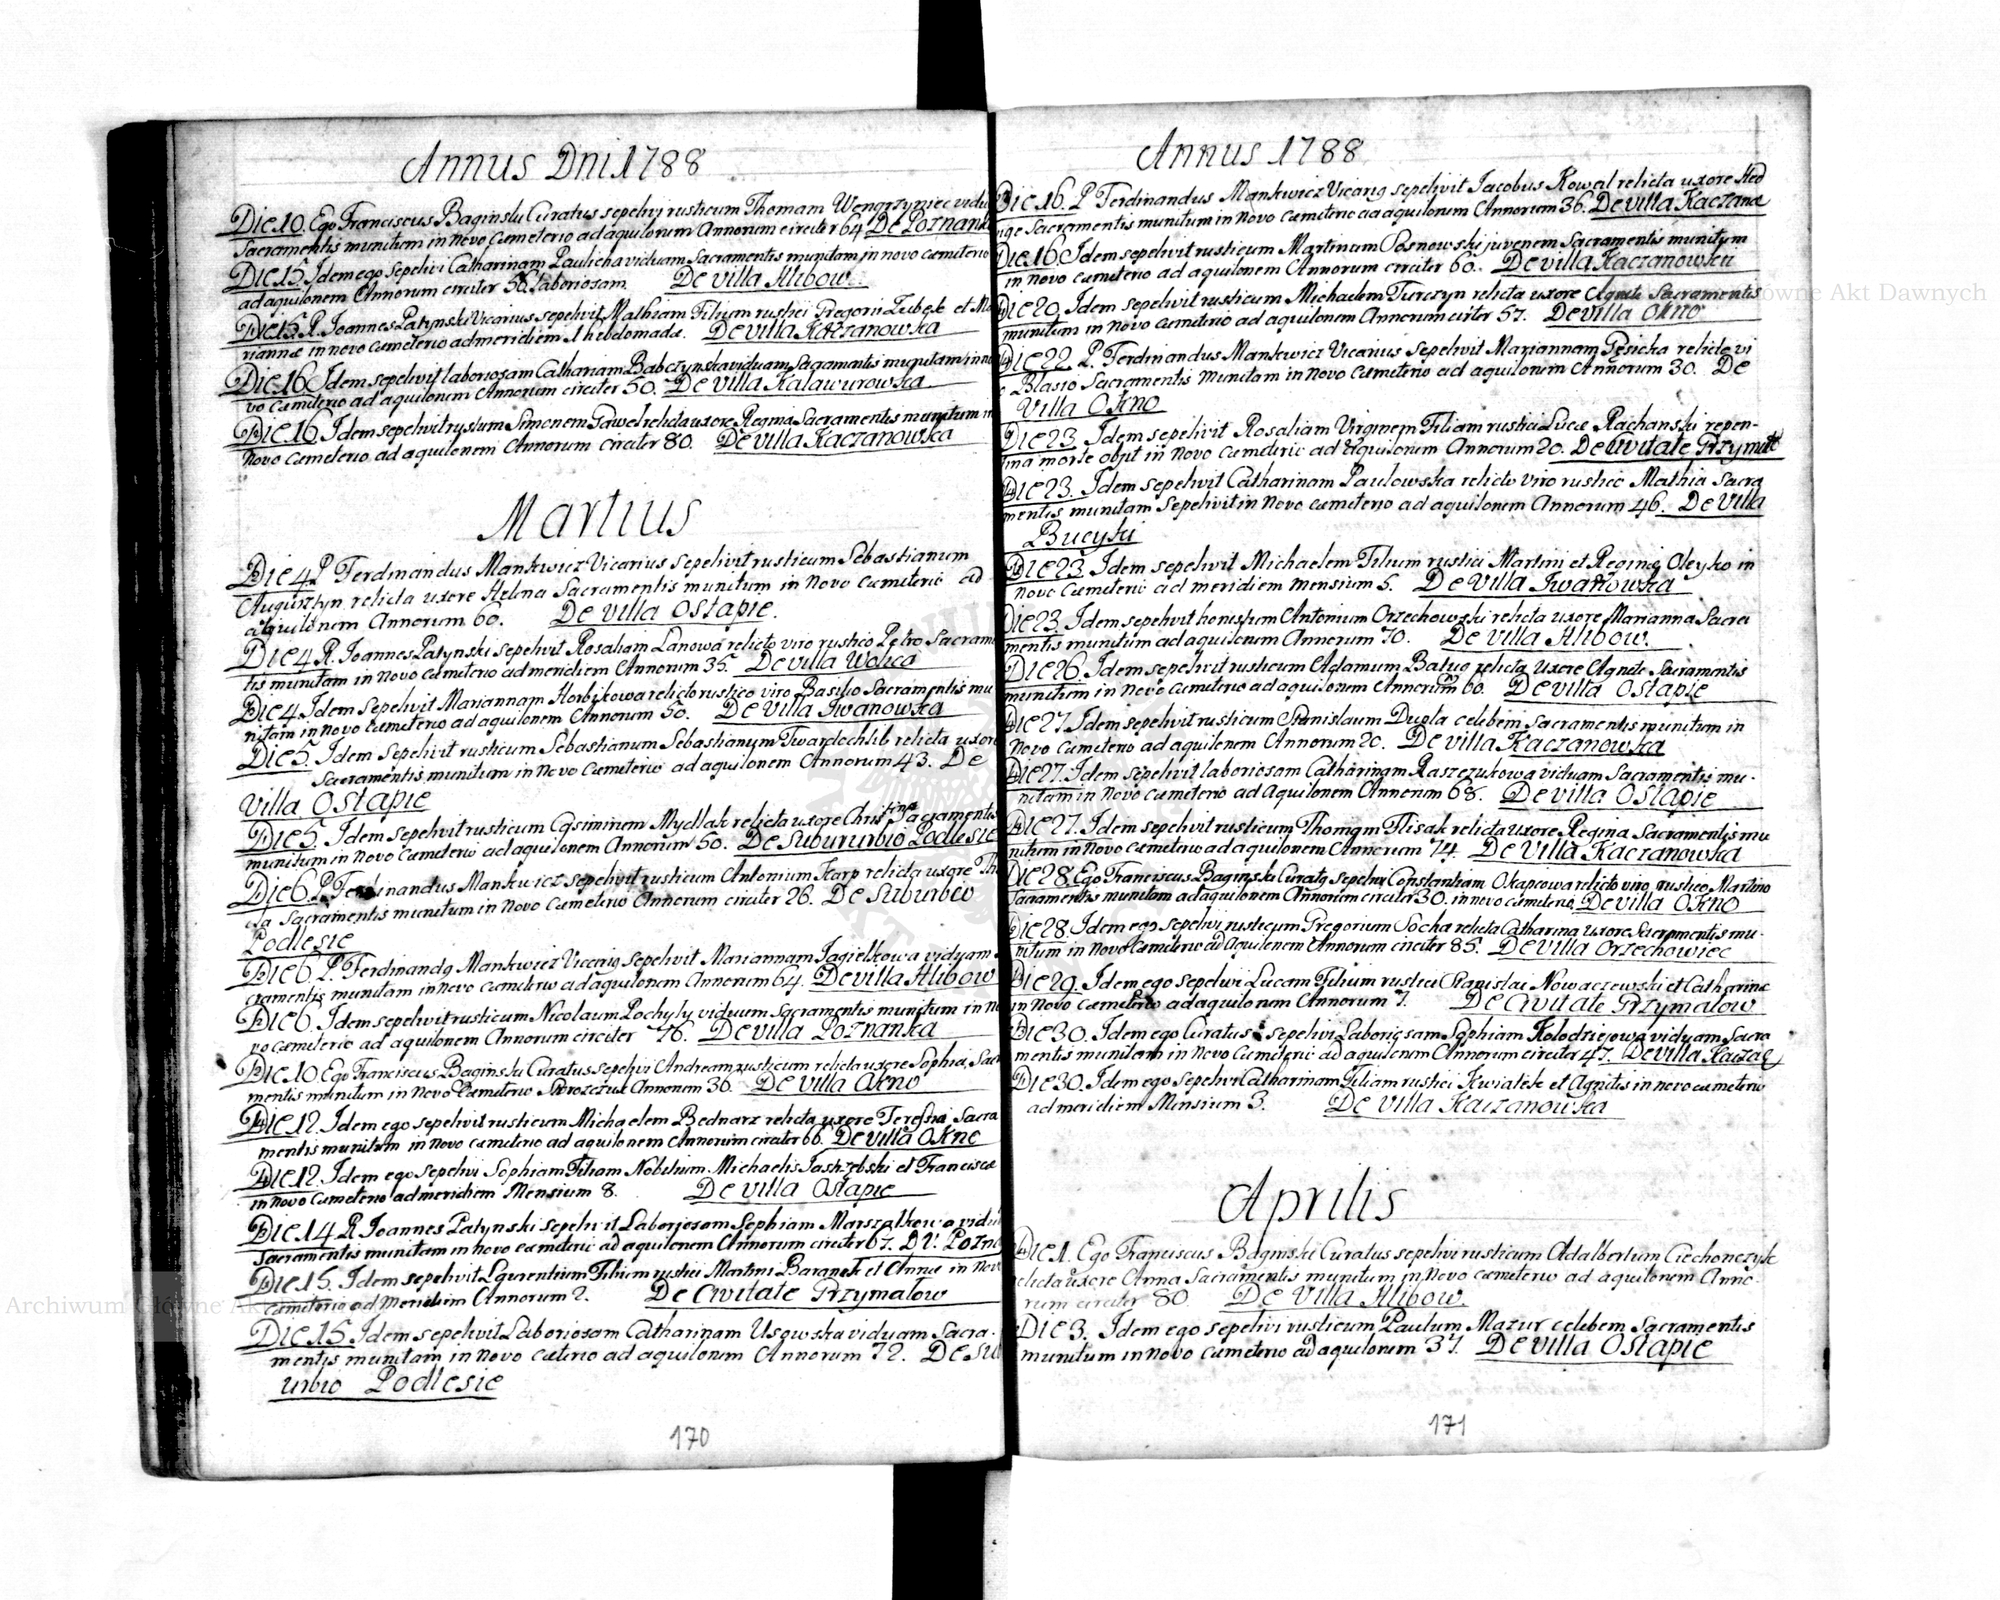 Annus Dni 1788
Die 10. Ego Franciscus Baginski Curatus sepelivi rusticum Thomam Wengrzyniec vidu
Sacramentis munitum in novo Cæmeterio ad aquilonem Annorum circiter 64 De Poznank
Die 15. Idem ego sepelivi Catharinam Paulicha viduam Sacramentis munitam in novo cæmeterio
ad aquilonem Annorum circiter 56 laboriosam. De villa Alibow
Die 15 R. Joannes Patynski Vicarius sepelivit Mathiam Filium rustici Gregorii et Ma
riannæ in novo cæmeterio ad meridiem 1 hebdomadæ. De villa Kaczanowka
Die 16 Idem sepelivit laboriosam Cathariam Babczynska viduam Sacramentis munitam in no
vo Cæmeterio ad aquilonem Annorum circiter 50. De villa Kalawurowka
Die 16 Idem sepelivit rustum Simonem Gawel relicta uxore Regina Sacramentis munitum in
novo Cæmeterio ad aquilonem Annorum circiter 80. De villa Kaczanowka
Martius
Die 4 P. Ferdinandus Mankwicz Vicarius sepelivit rusticum Sebastianum
Augustyn relicta uxore Helena Sacramentis munitum in Novo Cæmeterio ad
aquilonem Annorum 60. De villa Ostapie.
Die 4 R. Joannes Patynski sepelivit Rosaliam Lanowa relicto viro rustico Petro Sacramen
tis munitam in Novo Cæmeterio ad meridiem Annorum 35. De villa Wolica
Die 4 Idem Sepelivit Mariannam Horbikowa relicto rustico viro Basilio Sacramentis mu
nitam in novo Cæmeterio ad aquilonem Annorum 50. De villa Iwanowka
Die 5. Idem Sepelivit rusticum Sebastianum Sebastianum Twardochlib relicta uxore
Sacramentis munitum in Novo Cæmeterio ad aquilonem Annorum 43. De
villa Ostapie
Die 5. Idem sepelivit rusticum Casimirum Mydlak relicta uxore Christina Sacramentis
munitum in Novo Cæmeterio ad aquilonem Annorum 50. De Suburbio Podlesie
Die 6 P. Ferdinandus Mankwicz sepelivit rusticum Antonium Karp relicta uxore
Sacramentis munitum in Novo Cæmeterio Annorum circiter 26. De Suburbio
Podlesie
Die 6 P. Ferdinandg Mankwicz Vicarig sepelivit Mariannam Jagielkowa viduam
cramentis munitam in novo Cæmeterio ad aquilonem Annorum 64. De villa Alibow
Die 6. Idem sepelivit rusticum Nicolaum Pochyly viduum Sacramentis munitum in no
vo cæmeterio ad aquilonem Annorum circiter 76. De villa Poznanka
Die 10. Ego Franciscus Baginski Curatus sepelivi Andream rusticum relicta uxore Sophia, Sacr
mentis munitum in Novo Cæmeterio Annorum 36. De villa Okno
Die 12. Idem ego sepelivit rusticum Michaelem Bednarz relicta uxore Teressia Sacra
mentis munitum in Novo cæmeterio ad aquilonem Annorum circiter 66. De villa Okno
Die 12. Idem ego sepelivi Sophiam Filiam Nobilium Michaelis Jastrzebski et Franciscæ
in novo Cæmeterio ad meridiem Mensium 8. De villa Ostapie
Die 14 R Joannes Patynski sepelivit Laboriosam Sophiam Marszalkowa vidu
Sacramentis munitam in novo cæmeterio ad aquilonem Annorum circiter 67. D V. Pozna
Die 15. Idem sepelivit Laurentium Filium rustici Martini Baranek et Annæ in Novo
Cæmeterio ad Meridiem Annorum 2. De Civitate Przymalow
Die 15 Idem sepelivit Laboriosam Catharinam viduam Sacra-
mentis munitam in novo cæterio ad aquilonem Annorum 72. De Su
urbio Podlesie
170
Annus 1788
Die 16. P Ferdinandus Mankwicz Vicarig sepelivit Jacobus Kowal relicta uxore Hed
wige Sacramentis munitum in novo Cæmeterio ad aquilonem Annorum 36. De villa Kaczano
Die 16. Idem sepelivit rusticum Martinum Posnowski juvenem Sacramentis munitum
in novo cæmeterio ad aquilonem Annorum circiter 60. De villa Kaczanowka
Die 20. Idem sepelivit rusticum Michaelem Turczyn relicta uxore Agnete Sacramentis
munitum in Novo Cæmeterio ad aquilonem Annorum citer 57. De villa Okno
Die 22. P. Ferdinandus Mankwicz Vicarius Sepelivit Mariannam Gęsicka relicto vi
Blasio Sacramentis Munitam in Novo Cæmeterio ad aquilonem Annorum 30. De
Villa Okno
Die 23. Idem sepelivit Rosaliam Virginem Filiam rustici Lucæ Rachanski repen-
tina morte obijt in Novo Cæmeterio ad Aquilonem Annorum 20. De Civitate Przymał
Die 23. Idem sepelivit Catharinam Paulowska relicto viro rustico Mathia Sacra
mentis munitam Sepelivit in Novo cæmeterio ad aquilonem Annorum 46. De Villa
Bucyki
Die 23. Idem sepelivit Michaelem Filium rustici Martini et Reginæ Oleyko in
novo Cæmeterio ad meridiem mensium 5. De Villa Iwanowka
Die 23. Idem sepelivit honestum Antonium Orzechowski relicta uxore Marianna Sacra
mentis munitum ad aquilonem Annorum 70. De villa Alibow.
Die 26. Idem sepelivit rusticum Adamum relicta uxore Agnete Sacramentis
munitum in Novo Cæmeterio ad aquilonem Annorum 60. De villa Ostapie
Die 27. Idem sepelivit rusticum Stanislaum Dupla celebem Sacramentis munitum in
Novo Cæmeterio ad aquilonem Annorum 20. De villa Kaczanowka
Die 27. Idem sepelivit laboriosam Catharinam Raszczukowa viduam Sacramentis mu-
nitam in Novo Cæmeterio ad Aquilonem Annorum 68. De villa Ostapie
Die 27. Idem sepelivit rusticum Thomam Flisak relicta uxore Regina Sacramentis mu
nitum in Novo Cæmeterio ad aquilonem Annorum 74. De Villa Kaczanowka
Die 28. Ego Franciscus Baginski Curatg sepelivi Constantiam Okapcowa relicto viro rustico Martino
Sacramentis munitam ad aquilonem Annorum circiter 30. in novo cæmeterio. De villa Okno
Die 28. Idem ego sepelivi rusticum Gregorium Socha relicta Catharina uxore Sacramentis mu-
nitum in Novo Cæmeterio ad Aquilonem Annorum circiter 85. De villa Orzechowiec
Die 29. Idem ego sepelivi Lucam Filium rustici Stanislai Nowaczewski et Catharinæ
in Novo Cæmeterio ad aquilonem Annorum 7. De Civitate Przymalow
Die 30. Idem ego Curatus sepelivi Laboriosam Sophiam Kolodziejowa viduam Sacra
mentis munitam in Novo Cæmeterio ad aquilonem Annorum circiter 47. De villa Kaczag
Die 30. Idem ego sepelivi Catharinam Filiam rustici Kwiatek et Agnitis in novo cæmeterio
ad meridiem Mensium 3. De villa Kaczanowka
Aprilis
Die 1. Ego Franciscus Baginski Curatus sepelivi rusticum Adalbertum Ciechonczyk
relicta uxore Anna Sacramentis munitum in Novo cæmeterio ad aquilonem Anno-
rum circiter 80. De villa Alibow.
Die 3. Idem ego sepelivi rusticum Paulum Mazur celebem Sacramentis
munitum in Novo Cæmeterio ad aquilonem 37. De villa Ostapie
171
Archiwum Główne Akt Dawnych